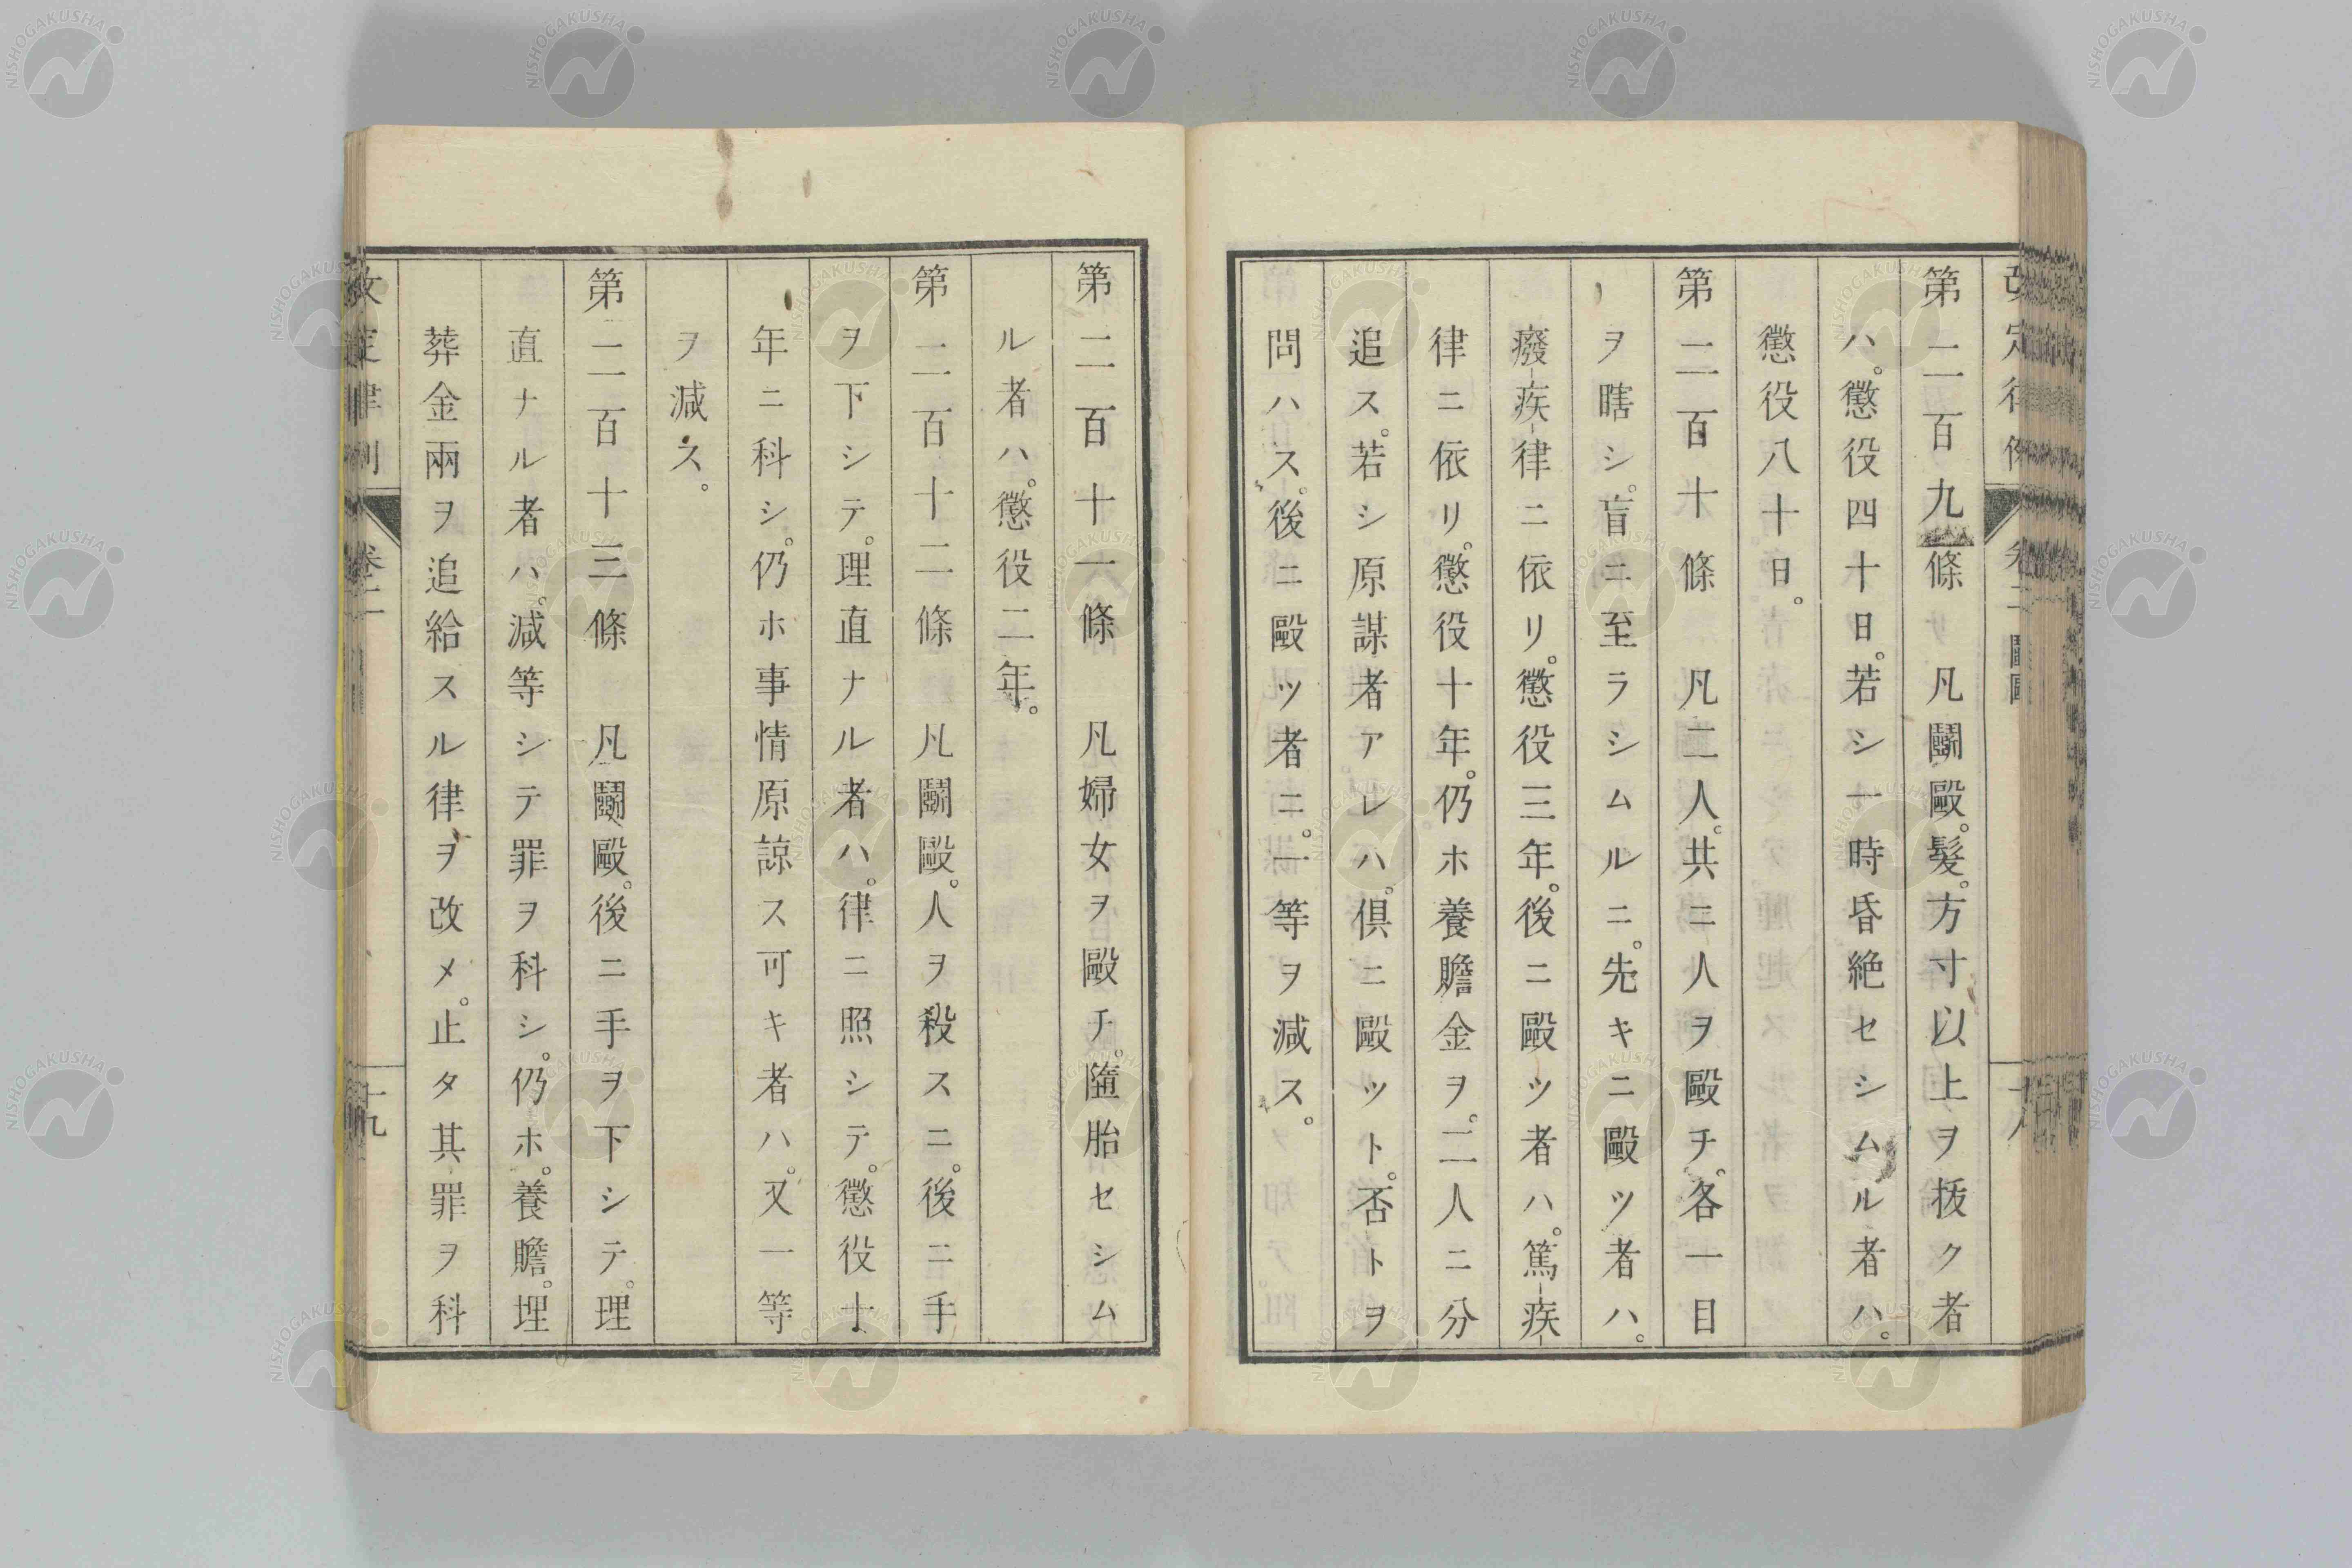 第二百九條　凡鬭毆。髮。方寸以上ヲ拔ク者
ハ。懲役四十日。若シ一時昏絶セシムル者ハ。
懲役八十日。
第二百十條　凡二人。共ニ人ヲ毆チ。各一目
ヲ瞎シ。盲ニ至ラシムルニ。先キニ毆ツ者ハ。
癈疾律ニ依リ。懲役三年。後ニ毆ツ者ハ。篤疾
律ニ依リ。懲役十年。仍ホ養贍金ヲ。二人ニ分
追ス。若シ原謀者アレハ。倶ニ毆ツト。否トヲ
問ハス。後ニ毆ツ者ニ。一等ヲ減ス。
第二百十一條　凡婦女ヲ毆チ。墮胎セシム
ル者ハ。懲役二年。
第二百十二條　凡鬭毆。人ヲ殺スニ。後ニ手
ヲ下シテ。理直ナル者ハ。律ニ照シテ。懲役十
年ニ科シ。仍ホ事情原諒ス可キ者ハ。又一等
ヲ減ス。
第二百十三條　凡鬭毆。後ニ手ヲ下シテ。理
直ナル者ハ。減等シテ罪ヲ科シ。仍ホ。養贍。埋
葬金兩ヲ追給スル律ヲ改メ。止タ其罪ヲ科
改定律例　卷二　十九
NISHOGAKUSHA